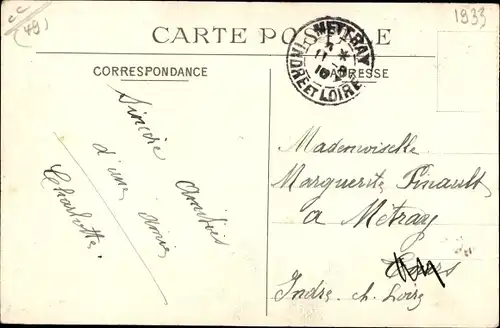 (49)
1933
CARTE POSTALE
METTRAY
INDRE ET LOIRE
CORRESPONDANCE
ADRESSE
Sincère Amitiés
d'une Amie
Charlotte
Mademoiselle
Marguerite Pinault
a Metray
Tours
Indre. ch. Loire